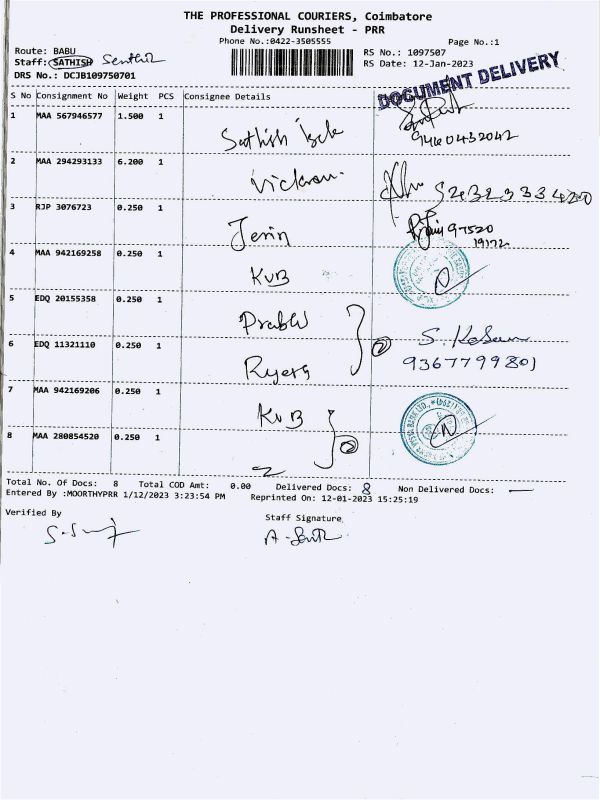 THE PROFESSIONAL COURIERS, Coimbatore
Delivery Runsheet - PRR
Phone No.:0422-3505555
Page No.:1
Route: BABU
RS No.: 1097507
Staff: SATHISH Senthil
RS Date: 12-Jan-2023
DRS No.: DCJB109750701
DOCUMENT DELIVERY
S No Consignment No Weight PCS Consignee Details
1 MAA 567946577 1.500 1 Sathish
9460432042
2 MAA 294293133 6.200 1 Vickram
3 RJP 3076723 0.250 1 Jerin 97520
19172
4 MAA 942169258 0.250 1 KVB
5 EDQ 20155358 0.250 1 Prabhu
6 EDQ 11321110 0.250 1 2
9367799801
7 MAA 942169206 0.250 1 KVB
8 MAA 280854520 0.250 1 2
Total No. Of Docs: 8 Total COD Amt: 0.00 Delivered Docs: 8 Non Delivered Docs: —
Entered By :MOORTHYPRR 1/12/2023 3:23:54 PM Reprinted On: 12-01-2023 15:25:19
Verified By
Staff Signature